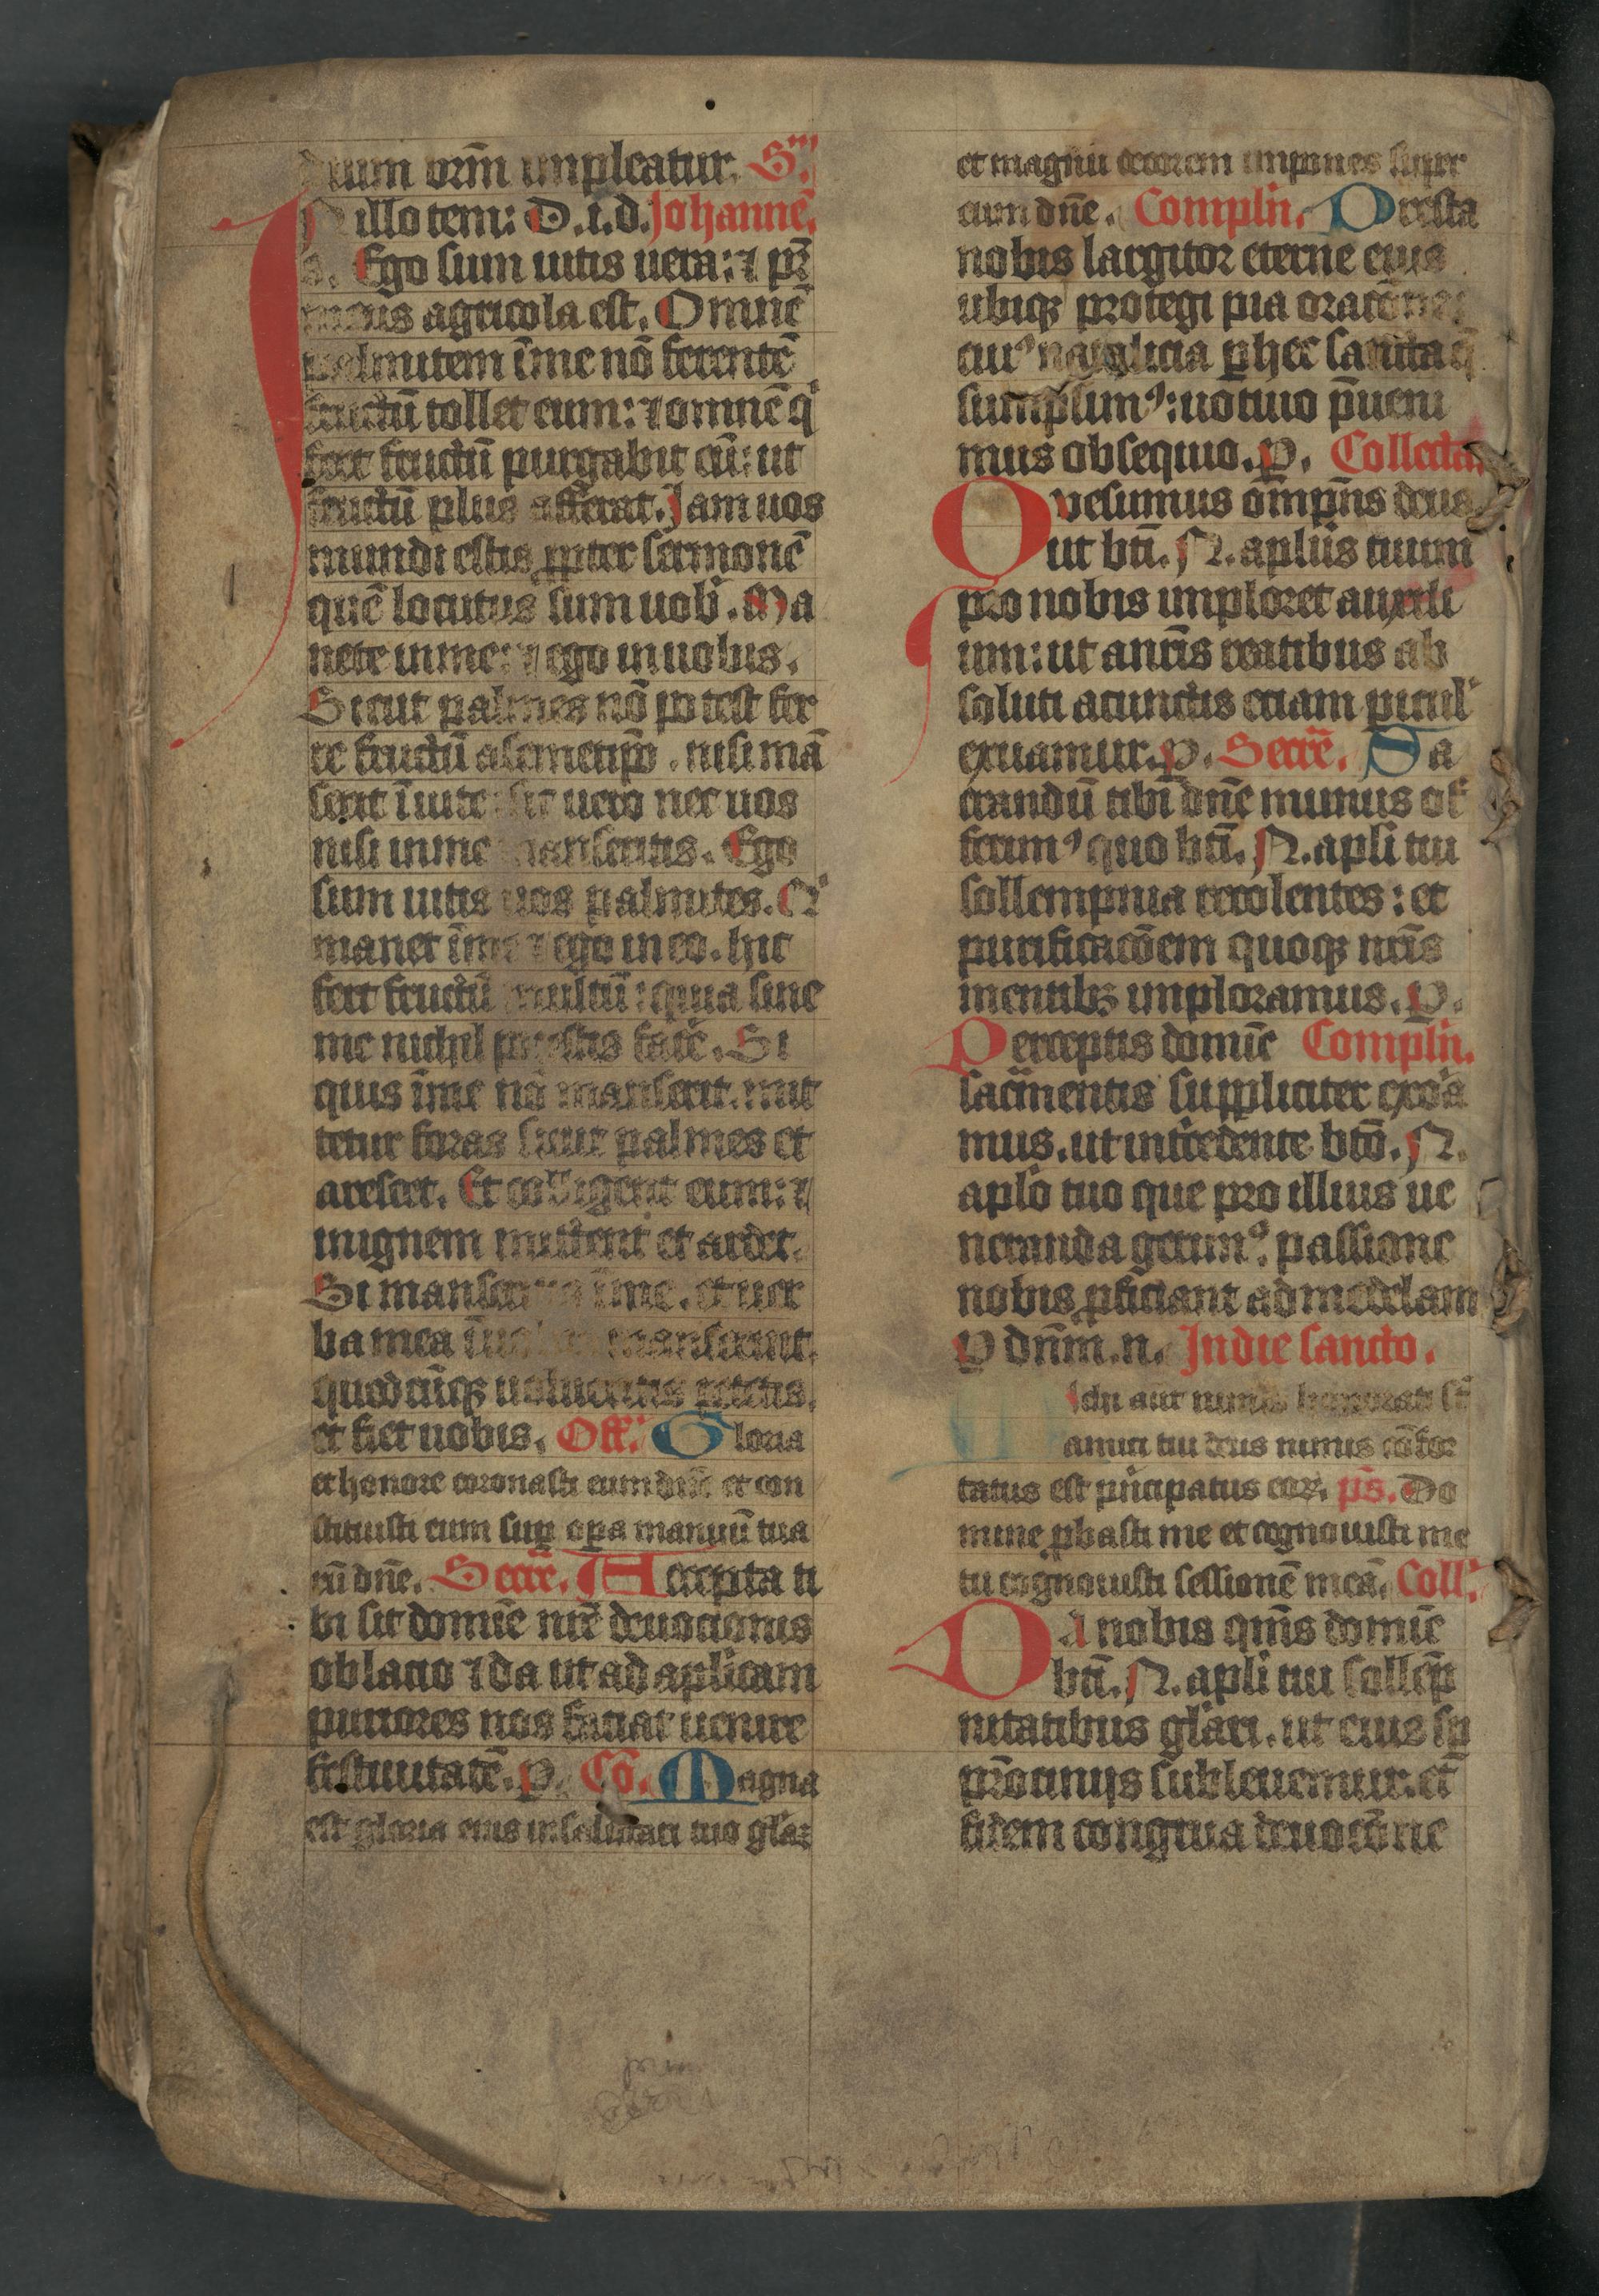 dium vr̄m impleatur. S.
IN illo tem: D. i. d. Johannē.
s. Ego sum uitis uera: ⁊ pr̄
meus agricola est. Omnē
palmitem ī me nō ferentē
fructū tollet eum: ⁊ omnē q
fert fructū purgabit eū: ut
fructū plus afferat. Jam uos
mundi estis ꝓpter sermonē
quē locutus sum uob. Ma
nete in me: ⁊ ego in uobis.
Sicut palmes nō potest fer
re fructū a semetip̄o. nisi mā
serit ī uite sic uero nec uos
nisi in me manseritis. Ego
sum uitis uos palmites. Qi
manet ī me ⁊ ego in eo. hic
fert fructū multū: quia sine
me nichil potestis facē. Si
quis ī me nō manserit. mit
tetur foras sicut palmes et
arescet. Et colligent eum: ⁊
in ignem mittent et ardet.
Si manseritis ī me. et uer
ba mea ī uobis manserint.
quodcūqꝫ uolueritis petetis.
et fiet uobis. Off. Gloria
et honore coronasti eum dn̄e et con
stituisti eum suꝑ oꝑa manuū tua
rū dn̄e. Secrē. Accepta ti
bi sit domīe nr̄e deuocionis
oblacio ⁊ da ut ad aplicam
puriores nos faciat uenire
festiuitatē. p. Cō. Magna
est gloria eius in salutari tuo glāꝫ
et magnū decorem impones super
eum dn̄e. Compln̄. Presta
nobis largitor eterne eius
ubiqꝫ protegi pia oracōne
cuiꝰ natalicia ꝑ hec sancta q̄
sumpsimꝰ: uotiuo p̄ueni
mus obsequio. p. Collecta.
Qvesumus om̄ip̄ns deus
ut btī. N. aplus tuum
pro nobis imploret auxili
um: ut a nr̄is reatibus ab
soluti a cunctis eciam picul'
exuamur. p. Secrē. Sa
crandū tibi dn̄e munus of
ferimꝰ quo btī. N. apli tui
sollempnia recolentes: et
purificacōem quoqꝫ nr̄is
mentibꝫ imploramus. p.
Perceptis domīe Compln̄.
sacm̄entis suppliciter exora
mus. ut intcedente btō. N.
aplō tuo que pro illius ue
neranda gerimꝰ. passione
nobis ꝓficiant ad medelam
P dn̄m. n. In die sancto.
Ichi aut nimis honorati st̄
amici tui deus nimis cōfor
tatus est pncipatus eoꝝ. ps. Do
mine ꝓbasti me et cognouisti me
tu cognouisti sessionē meā. Coll.
Da nobis qm̄s domīe
btī. N. apli tui sollēp
nitatibus glāri. ut eius sꝑ
pr̄ocinijs subleuemur. et
fidem congrua deuocōne